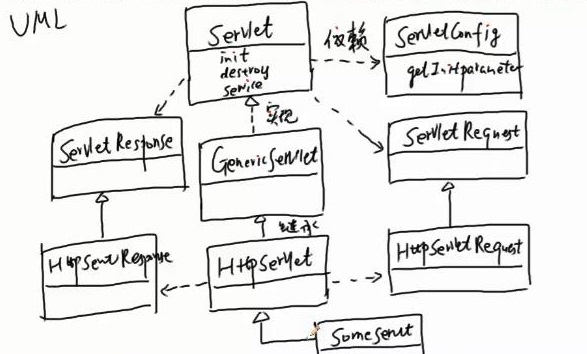 UML
Servlet
init
destroy
service
依赖
ServletConfig
getInitparameter
实现
Servlet Response
GenericServlet
Servlet Request
继承
HttpServt Response
HttpServlet
HttpServletRequest
SomeServt